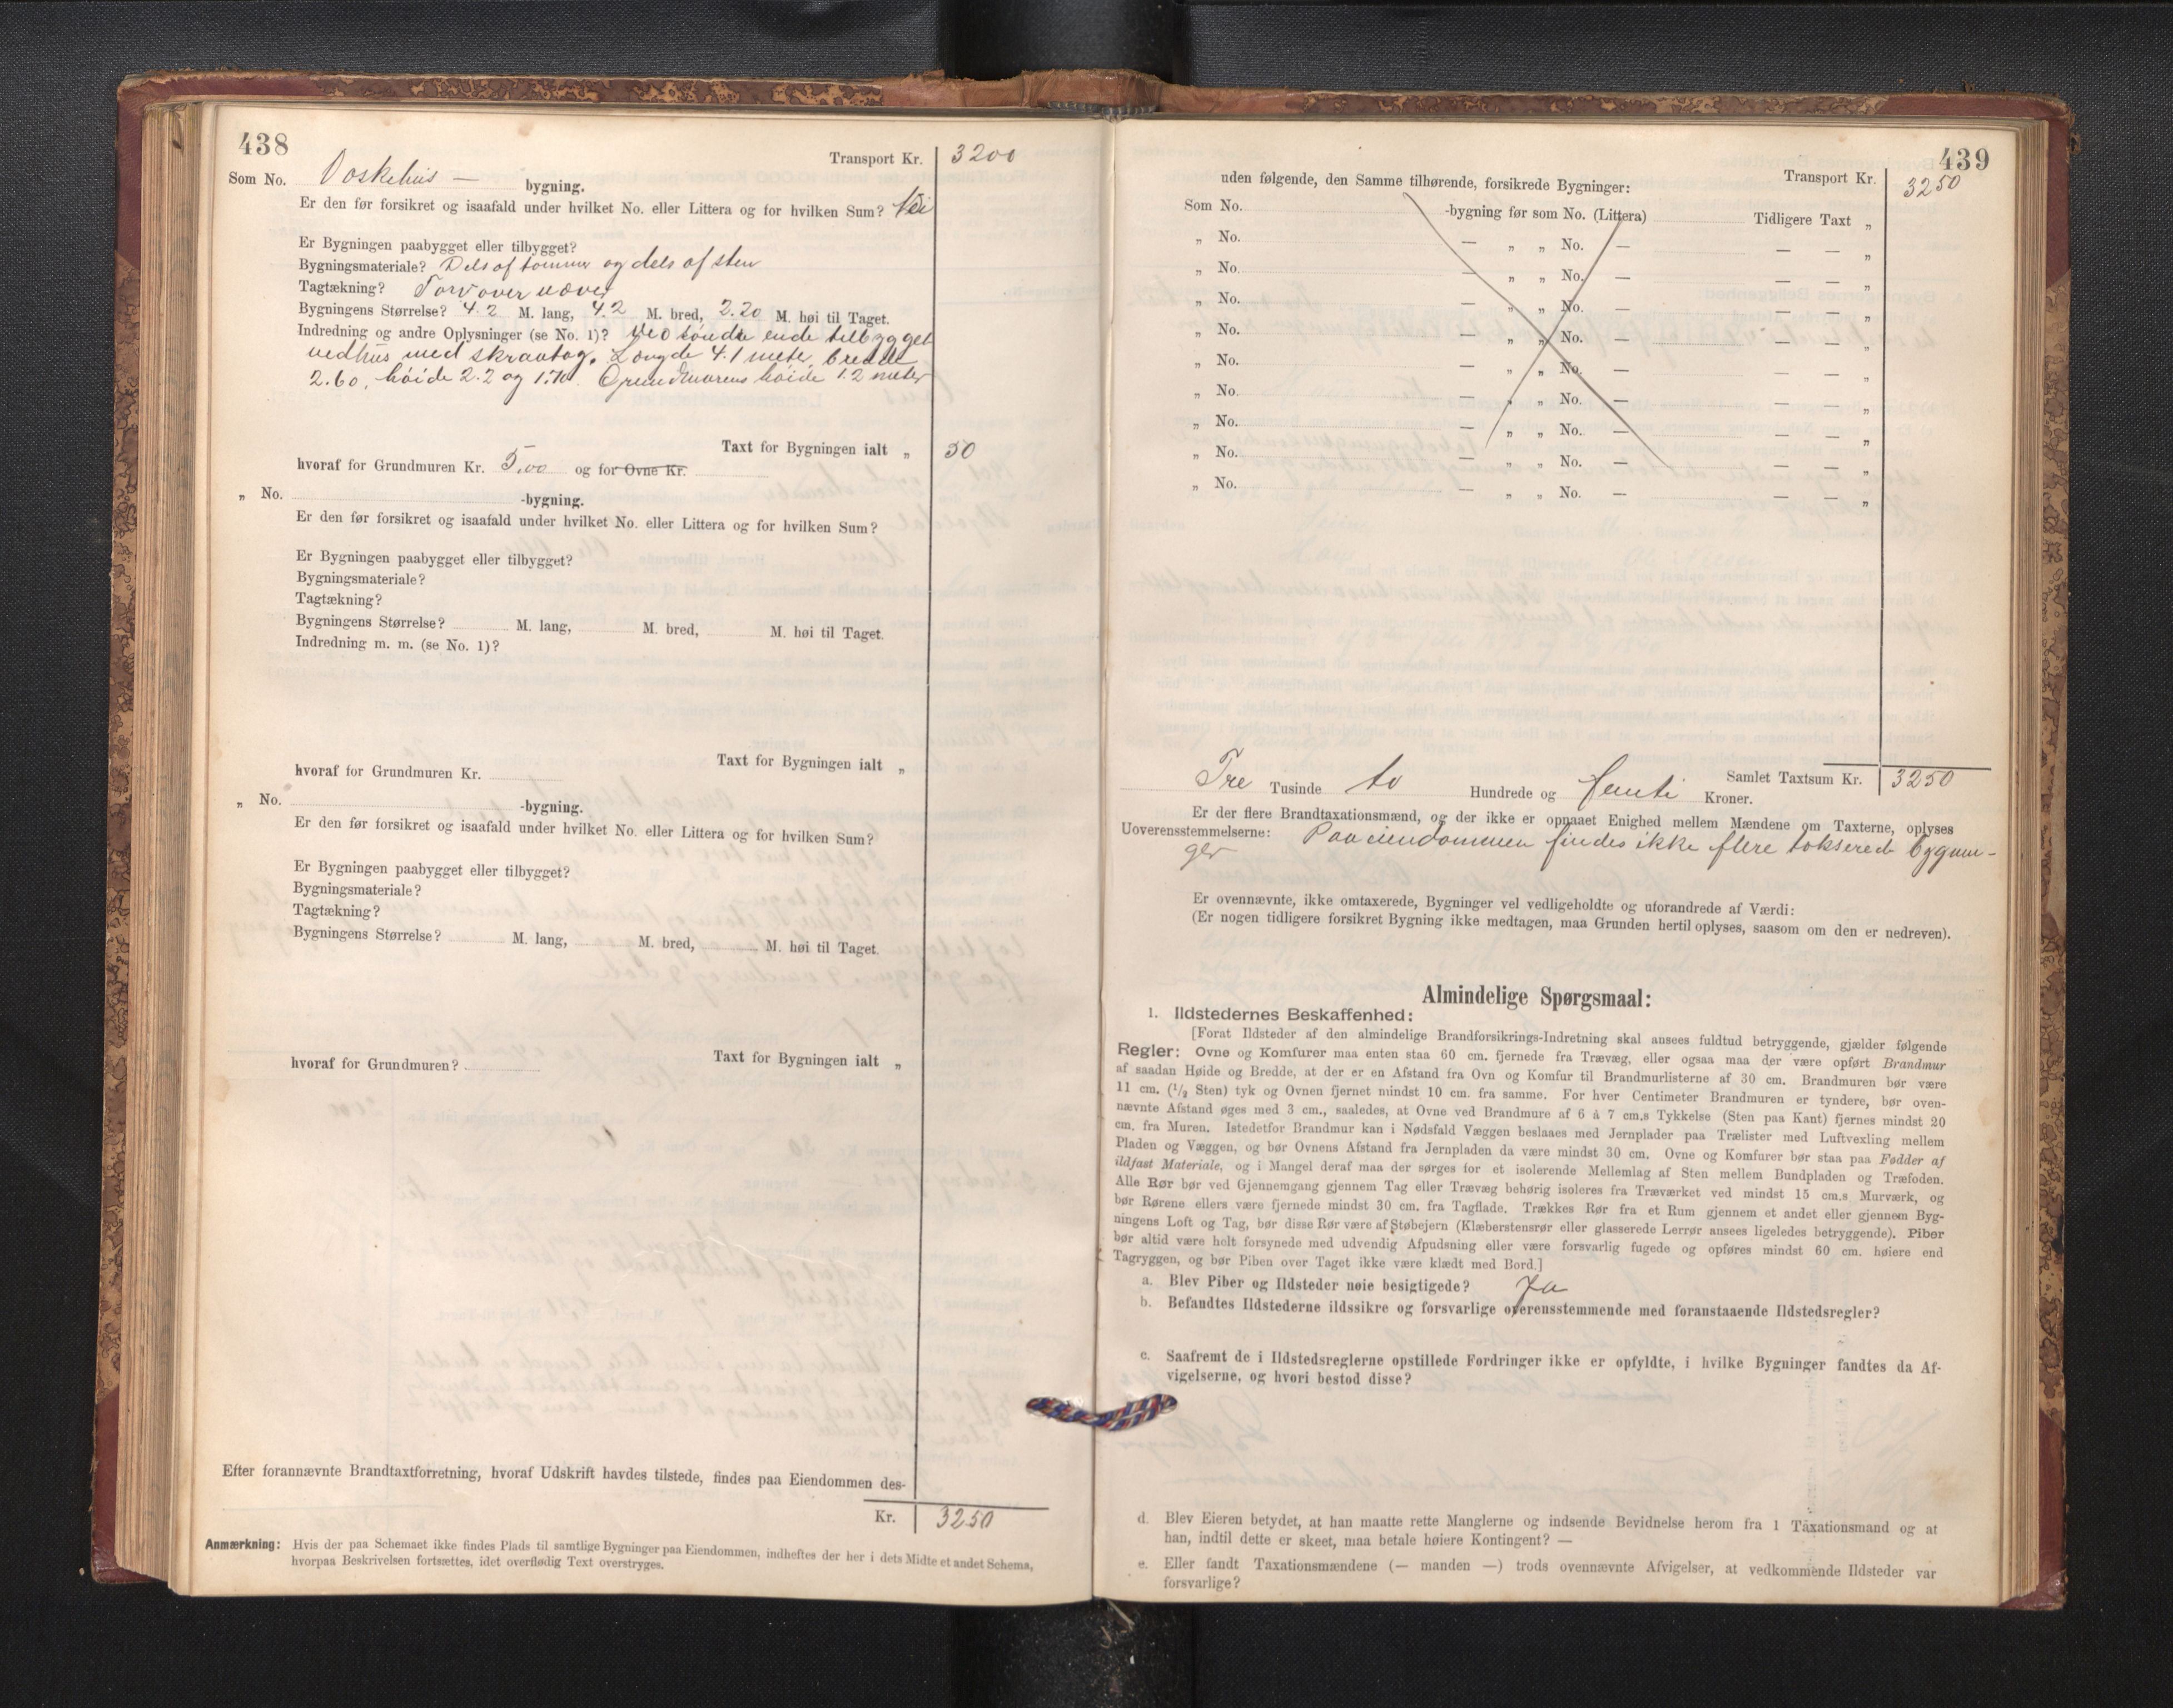 438
Transport Kr. 3200
Som No. Vaskehus — bygning.
Er den før forsikret og isaafald under hvilket No. eller Littera og for hvilken Sum? Nei
Er Bygningen paabygget eller tilbygget?
Bygningsmateriale? Dels af tømmer og dels af sten
Tagtækning? Torv over næver
Bygningens Størrelse? 4.2 M. lang, 4.2 M. bred, 2.20 M. høi til Taget.
Indredning og andre Oplysninger (se No. 1)? Ved søndre ende tilbygget
vedhus med skraatag. Længde 4.1 meter, bredde
2.60, høide 2.2 og 1.70. Grundmurens høide 1.2 meter
Taxt for Bygningen ialt „ 50
hvoraf for Grundmuren Kr. 5,00 og for Ovne Kr.
„ No. -bygning.
Er den før forsikret og isaafald under hvilket No. eller Littera og for hvilken Sum?
Er Bygningen paabygget eller tilbygget?
Bygningsmateriale?
Tagtækning?
Bygningens Størrelse? M. lang, M. bred, M. høi til Taget.
Indredning m. m. (se No. 1)?
Taxt for Bygningen ialt „
hvoraf for Grundmuren Kr.
„ No. -bygning.
Er den før forsikret og isaafald under hvilket No. eller Littera og for hvilken Sum?
Er Bygningen paabygget eller tilbygget?
Bygningsmateriale?
Tagtækning?
Bygningens Størrelse? M. lang, M. bred, M. høi til Taget.
Taxt for Bygningen ialt „
hvoraf for Grundmuren?
Efter forannævnte Brandtaxtforretning, hvoraf Udskrift havdes tilstede, findes paa Eiendommen des-
Kr. 3250
Anmærkning: Hvis der paa Schemaet ikke findes Plads til samtlige Bygninger paa Eiendommen, indheftes der her i dets Midte et andet Schema,
hvorpaa Beskrivelsen fortsættes, idet overflødig Text overstryges.
439
Transport Kr. 3250
uden følgende, den Samme tilhørende, forsikrede Bygninger:
Som No. -bygning før som No. (Littera) Tidligere Taxt „
„ No. — „ „ No. — — — „
„ No. — „ „ No. — — — „
„ No. — „ „ No. — — — „
„ No. — „ „ No. — — — „
„ No. — „ „ No. — — — „
„ No. — „ „ No. — — — „
„ No. — „ „ No. — — — „
„ No. — „ „ No. — — — „
„ No. — „ „ No. — — — „
Samlet Taxtsum Kr. 3250
Tre Tusinde to Hundrede og femti Kroner.
Er der flere Brandtaxationsmænd, og der ikke er opnaaet Enighed mellem Mændene om Taxterne, oplyses
Uoverensstemmelserne: Paa eiendommen findes ikke flere takserede bygnin-
ger
Er ovennævnte, ikke omtaxerede, Bygninger vel vedligeholdte og uforandrede af Værdi:
(Er nogen tidligere forsikret Bygning ikke medtagen, maa Grunden hertil oplyses, saasom om den er nedreven).
Almindelige Spørgsmaal:
1. Ildstedernes Beskaffenhed:
[Forat Ildsteder af den almindelige Brandforsikrings-Indretning skal ansees fuldtud betryggende, gjælder følgende
Regler: Ovne og Komfurer maa enten staa 60 cm. fjernede fra Trævæg, eller ogsaa maa der være opført Brandmur
af saadan Høide og Bredde, at der er en Afstand fra Ovn og Komfur til Brandmurlisterne af 30 cm. Brandmuren bør være
11 cm. (½ Sten) tyk og Ovnen fjernet mindst 10 cm. fra samme. For hver Centimeter Brandmuren er tyndere, bør oven-
nævnte Afstand øges med 3 cm., saaledes, at Ovne ved Brandmure af 6 à 7 cm.s Tykkelse (Sten paa Kant) fjernes mindst 20
cm. fra Muren. Istedetfor Brandmur kan i Nødsfald Væggen beslaaes med Jernplader paa Trælister med Luftvexling mellem
Pladen og Væggen, og bør Ovnens Afstand fra Jernpladen da være mindst 30 cm. Ovne og Komfurer bør staa paa Fødder af
ildfast Materiale, og i Mangel deraf maa der sørges for et isolerende Mellemlag af Sten mellem Bundpladen og Træfoden.
Alle Rør bør ved Gjennemgang gjennem Tag eller Trævæg behørig isoleres fra Træværket ved mindst 15 cm.s Murværk, og
bør Rørene ellers være fjernede mindst 30 cm. fra Tagflade. Trækkes Rør fra et Rum gjennem et andet eller gjennem Byg-
ningens Loft og Tag, bør disse Rør være af Støbejern (Klæberstensrør eller glasserede Lerrør ansees ligeledes betryggende). Piber
bør altid være helt forsynede med udvendig Afpudsning eller være forsvarlig fugede og opføres mindst 60 cm. høiere end
Tagryggen, og bør Piben over Taget ikke være klædt med Bord.]
a. Blev Piber og Ildsteder nøie besigtigede? Ja
b. Befandtes Ildstederne ildssikre og forsvarlige overensstemmende med foranstaaende Ildstedsregler?
c. Saafremt de i Ildstedsreglerne opstillede Fordringer ikke er opfyldte, i hvilke Bygninger fandtes da Af-
vigelserne, og hvori bestod disse?
d. Blev Eieren betydet, at han maatte rette Manglerne og indsende Bevidnelse herom fra 1 Taxationsmand og at
han, indtil dette er skeet, maa betale høiere Kontingent? —
e. Eller fandt Taxationsmændene (— manden —) trods ovennævnte Afvigelser, at vedkommende Ildsteder var
forsvarlige?